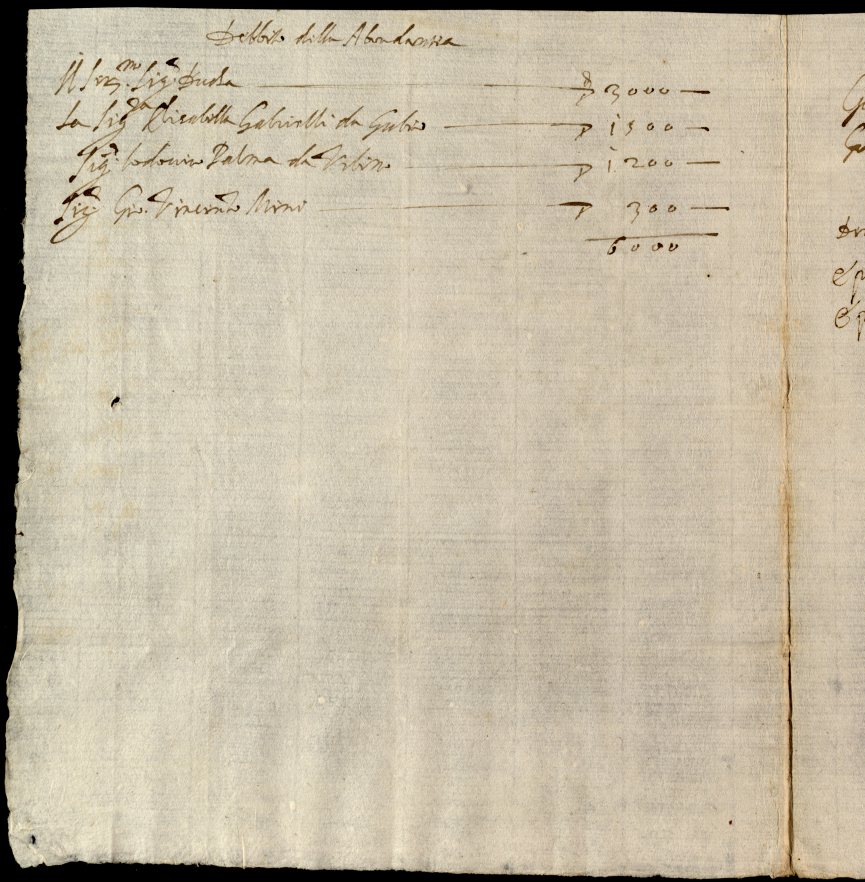 Debbito della Abundantia
Il Ser.mo Sig.r Duca ▽ 3000 —
La Sig.ra Elisabetta Gabrielli da Gubio ▽ 1500 —
Sig.r Lodovico Palma da Urbino ▽ 1200 —
Sig.r Gio. Vincenzo 300 —
6000